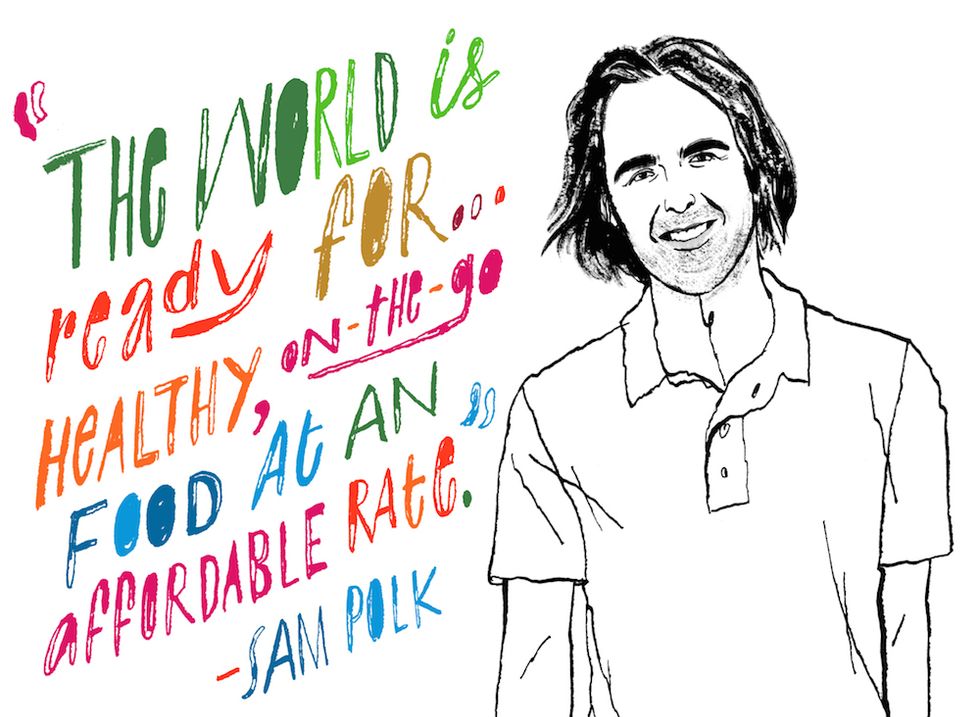 "THE WORLD is
ready FOR...
HEALTHY, ON-tHe-go
FOOD At AN
aFFORDABLE RAte."
-SAM POLK